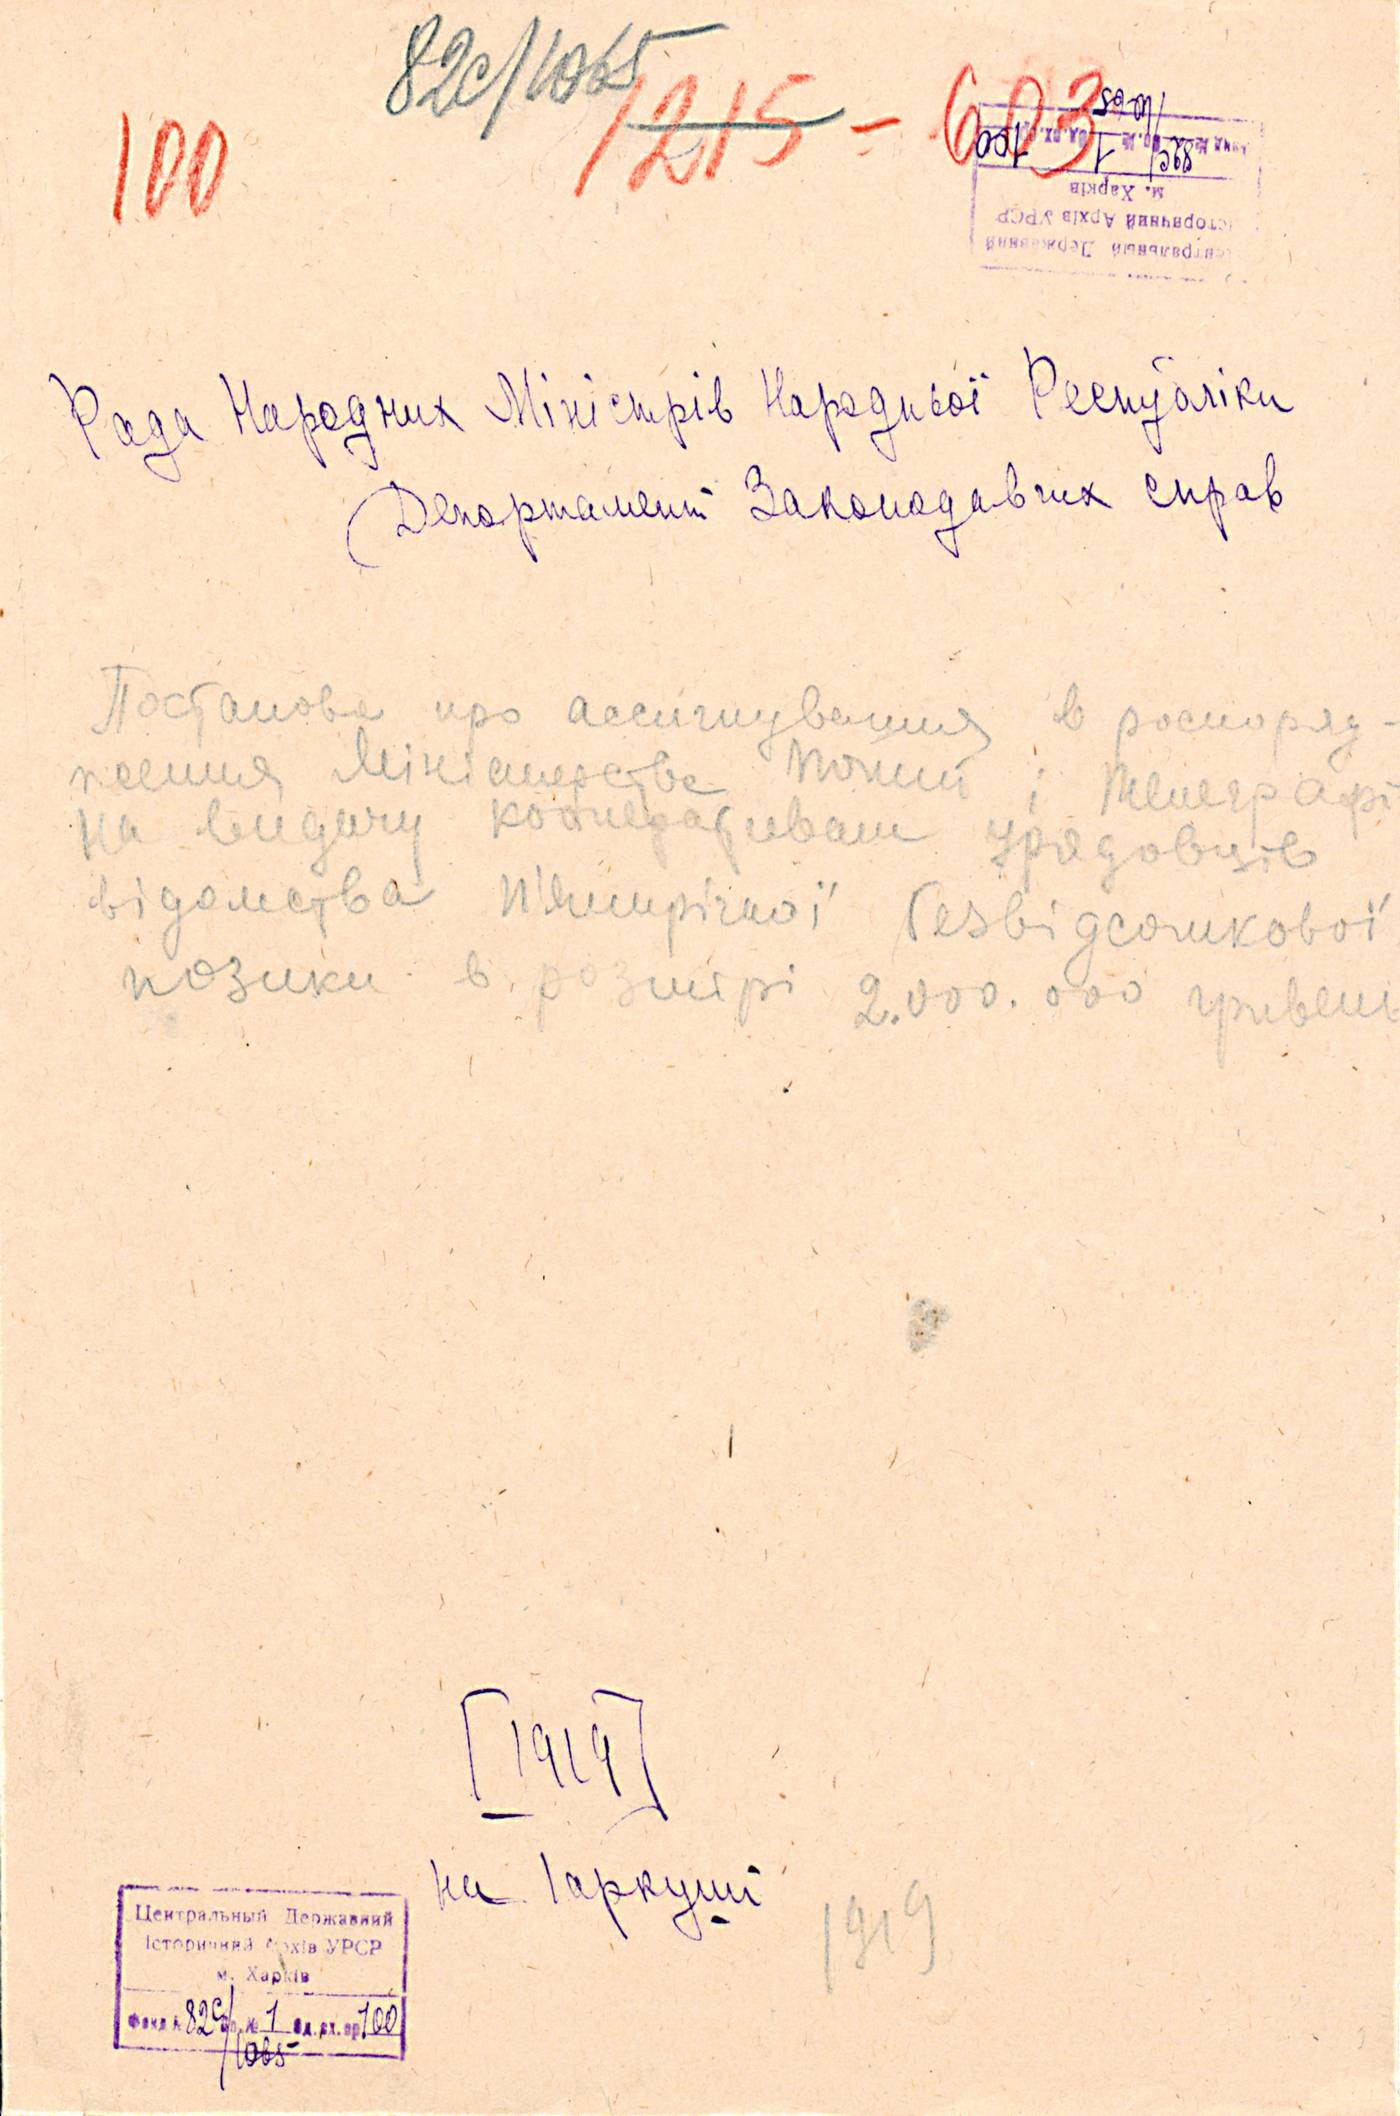 82с/1065
100
1215 - 603
1065
82с/ 1 100
м. Харків
Історичний Архів УРСР
Центральный Державний
Рада Народних Міністрів Народньої Республіки
Департамент Законодавчих справ
Постанова про ассигнування в роспоряд-
ження Міністерства Пошт і Телеграфі
на видачу кооперативам урядовців
відомства п'ятирічної безвідсоткової
позики в розмірі 2.000.000 гривень
[1919]
на 1 аркуші
1919
Центральный Державний
Історичний Архів УРСР
м. Харків
Фонд № 82с/ оп. № 1 од. зх. ар. 100
1065